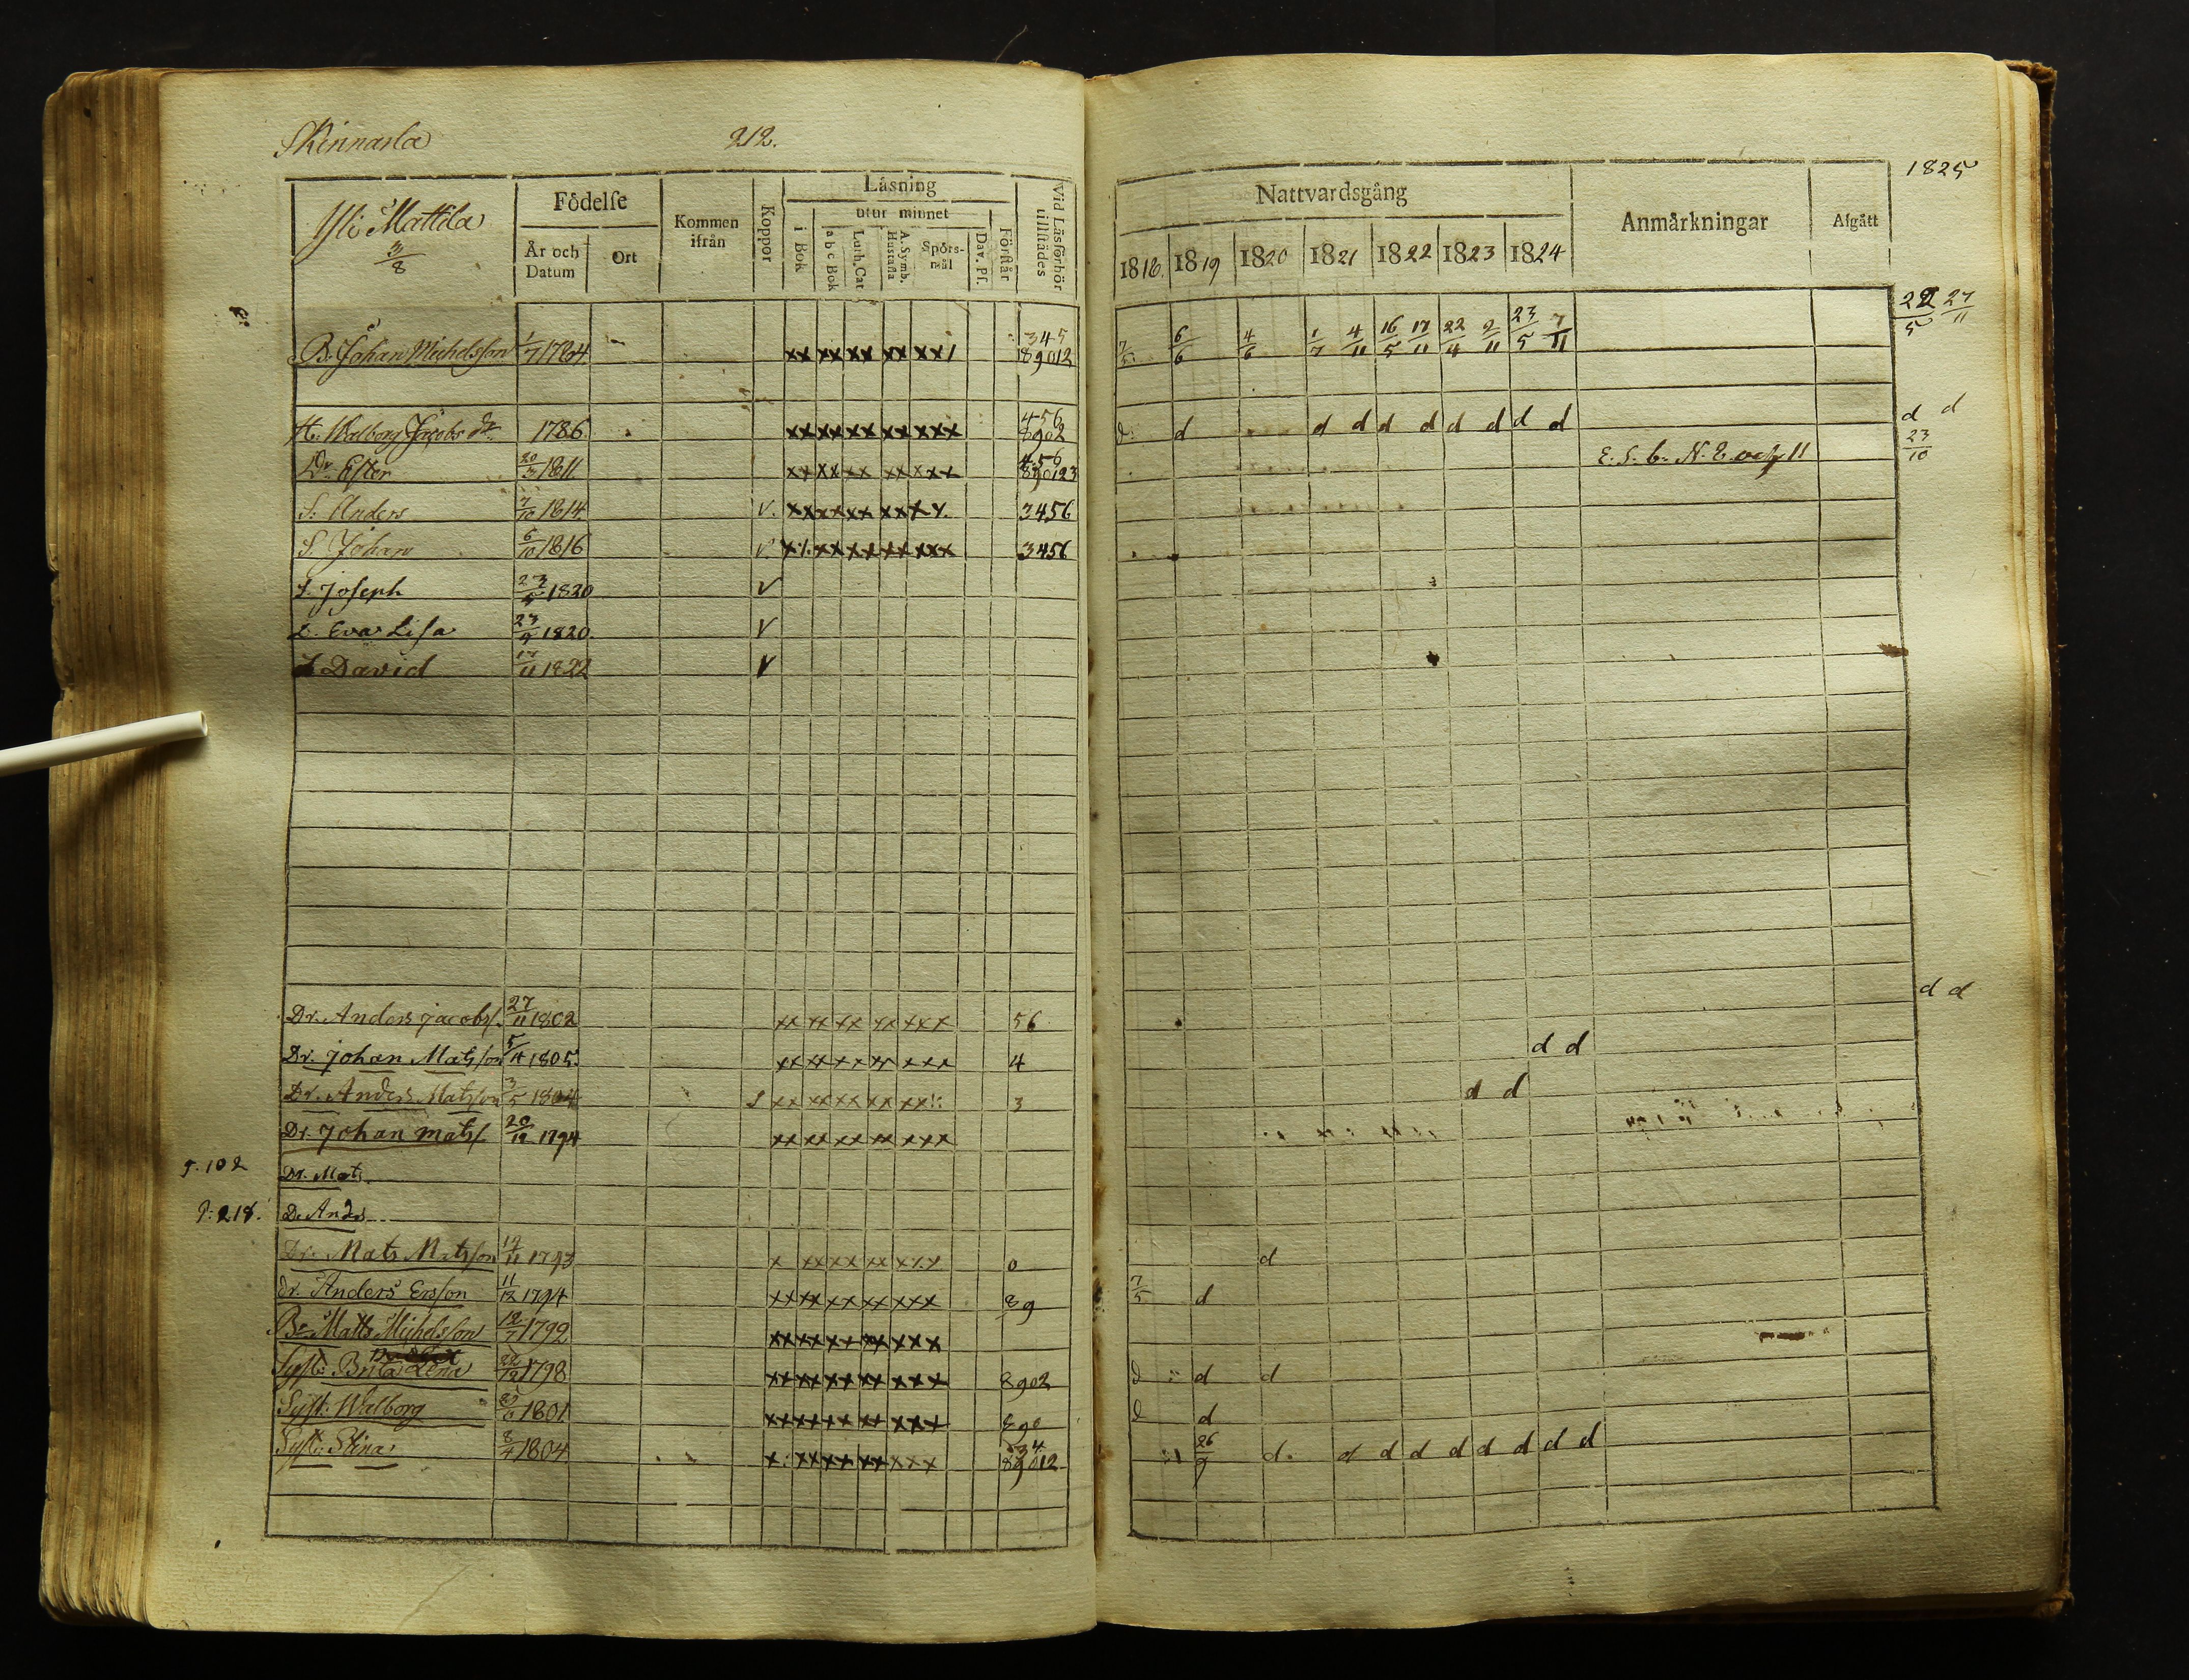 Skinnarla 212.
Yli Mattila 3/8
Födelse
År och Datum
Ort
Kommen ifrån
Koppor
Läsning
utur minnet
i Bok
a b c Bok
Luth. Cat
A. Symb. Hustafla
Spörsmål
Dav. Ps.
Förstår
Vid Läsförhör tillstädes
Nattvardsgång
1818. 1819 1820 1821 1822 1823 1824
Anmärkningar
Afgått
1825
B. Johan Michelsson 1/7 1784 xx xx xx xx xx/ 345 89012 7/5 6/6 4/6 1/7 4/11 16/5 17/11 22/4 2/11 23/5 7/11 22/5 27/11
H. Walborg Jacobs dr 1786 xx xx xx xx xxx 456 8902 d d d d d d d d d d d d
Dr Ester 20/3 1811 xx xx xx xx xxx 456 890123 23/10
S. Anders 7/10 1814 v. xx xx xx xx xx. 3456
S. Johan 6/10 1816 v x/. xx xx xx xxx 3456
S. Joseph 1820 v
D. Eva Lisa 1820 v
S David 17/11 1822 v
Dr. Anders Jacobs. 27/11 1802 xx xx xx xx xxx 56 d d
Dr. Johan Matsson 1805 xx xx xx xx xxx 4 d d
Dr. Anders Matsson 3/5 1804 xx xx xx xx xx 3 d d
Dr. Johan Mats. 20/12 1794 xx xx xx xx xxx
p. 102 Dr. Mats.
p. 218. D. Anders
Dr. Mats Matsson 12/11 1793 x xx xx xx xxx 0 d
dr. Anders Ersson 11/12 1794 xx xx xx xx xxx 89 7/5 d
Br Matts Michelsson 12/7 1792 xx xx xx xx xxx
Syst: Brita Lena 22/12 1798 xx xx xx xx xxx 8902 d d d
Syst: Walborg 1801 xx xx xx xx xxx 890 d d
Syst: Stina 8/4 1804 x: xx xx xx xxx 34 89012 26/9 d. d d d d d d d d